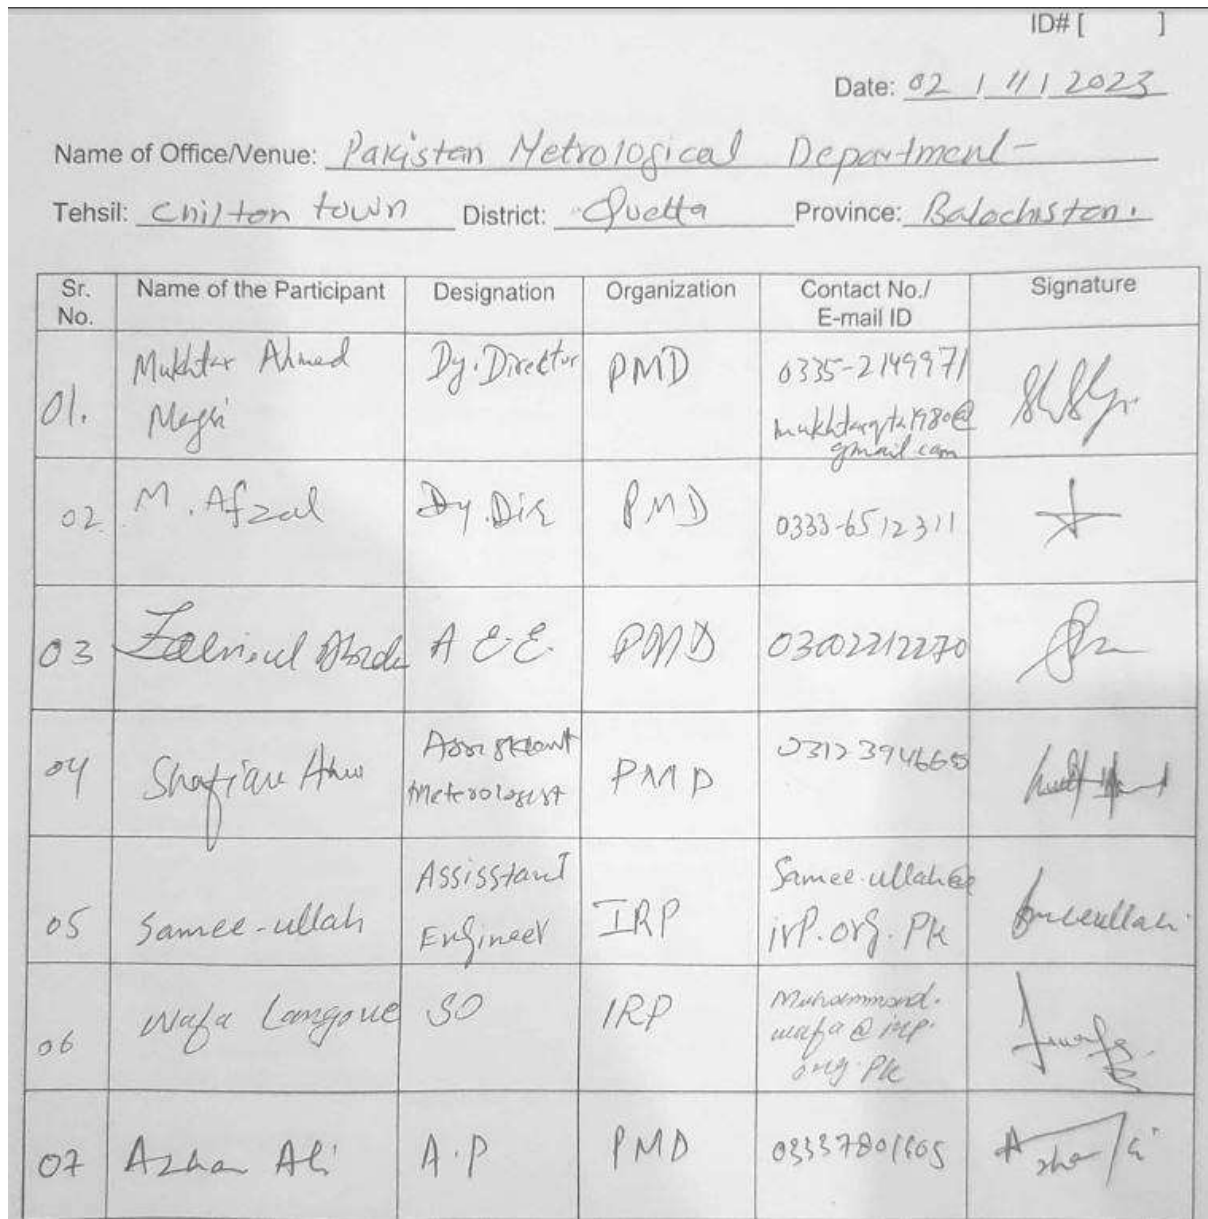 ID# [ ]
Date: 02 / 11 / 2023
Name of Office/Venue: Pakistan Metrological Department
Tehsil: Chilton town District: Quetta Province: Balochistan.
Sr. No. Name of the Participant Designation Organization Contact No./ E-mail ID Signature
01. Mukhtar Ahmed Magsi Dy. Director PMD 0335-2149971
mukhtarqta1980@
gmail.com
02. M. Afzal Dy. Dir PMD 0333-6512311
03 A E.E. PMD 03002212270
04 Assistant PMD
Meterologist
05 Samee-ullah Assisstant IRP Samee.ullah@
Engineer irp.org.Pk
06 Wafa Langove SO IRP Muhammad.
wafa@irp.
org.Pk
07 Azhar Ali A.P PMD